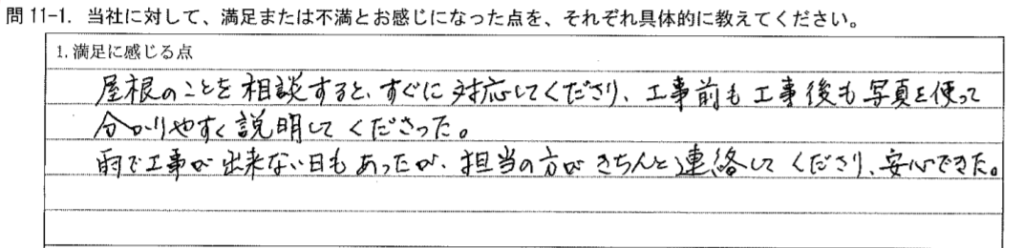 問 11-1. 当社に対して、満足または不満とお感じになった点を、それぞれ具体的に教えてください。
1. 満足に感じる点
屋根のことを相談すると、すぐに対応してくださり、工事前も工事後も写真を使って
分かりやすく説明してくださった。
雨で工事が出来ない日もあったが、担当の方がきちんと連絡してくださり、安心できた。